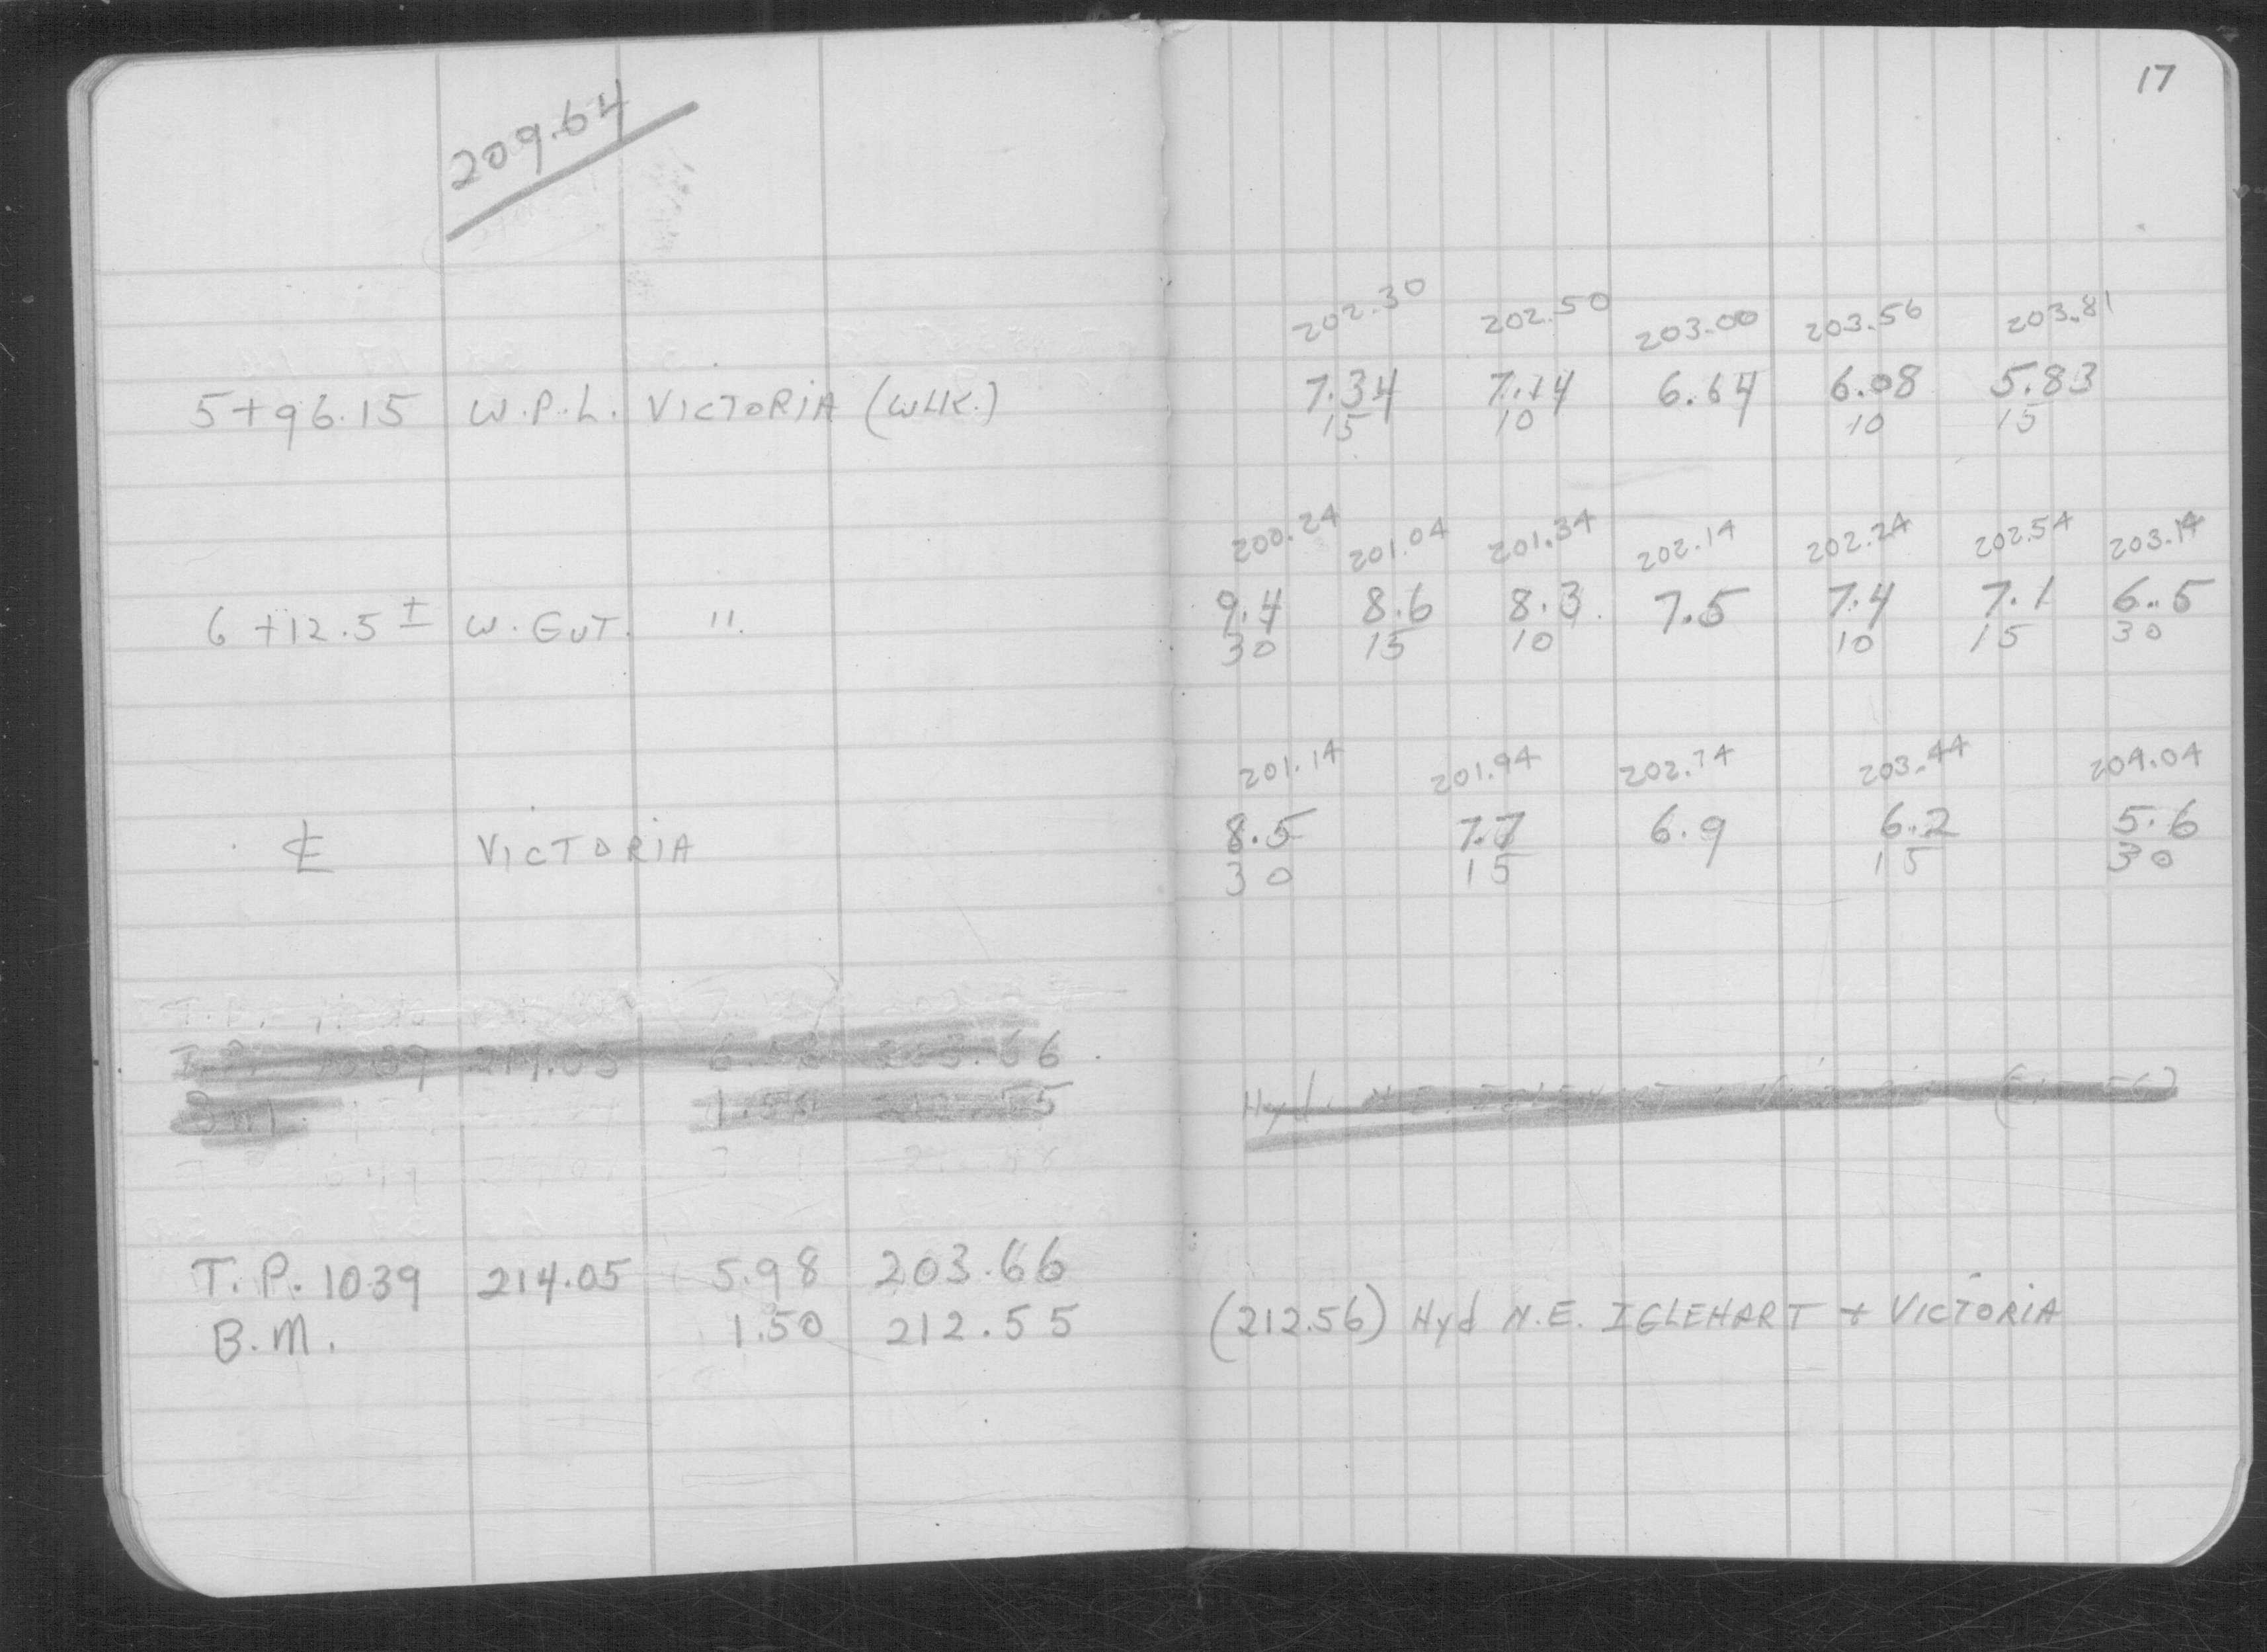 17
209.64
202.30 202.50 203.00 203.56 203.81
5+96.15 W.P.L. VICTORIA (WLK.) 7.34 7.14 6.64 6.08 5.83
15 10 10 15
200.24 201.04 201.34 202.14 202.24 202.54 203.14
6+12.5± W. GUT. " 9.4 8.6 8.3 7.5 7.4 7.1 6.5
30 15 10 10 15 30
201.14 201.94 202.74 203.44 204.04
℄ VICTORIA 8.5 7.7 6.9 6.2 5.6
30 15 15 30
T.P. 214.05 203.66
B.M. 1.50 212.55 Hyd. N.E.
T.P. 1039 214.05 5.98 203.66
B.M. 1.50 212.55 (212.56) Hyd N.E. IGLEHART + VICTORIA